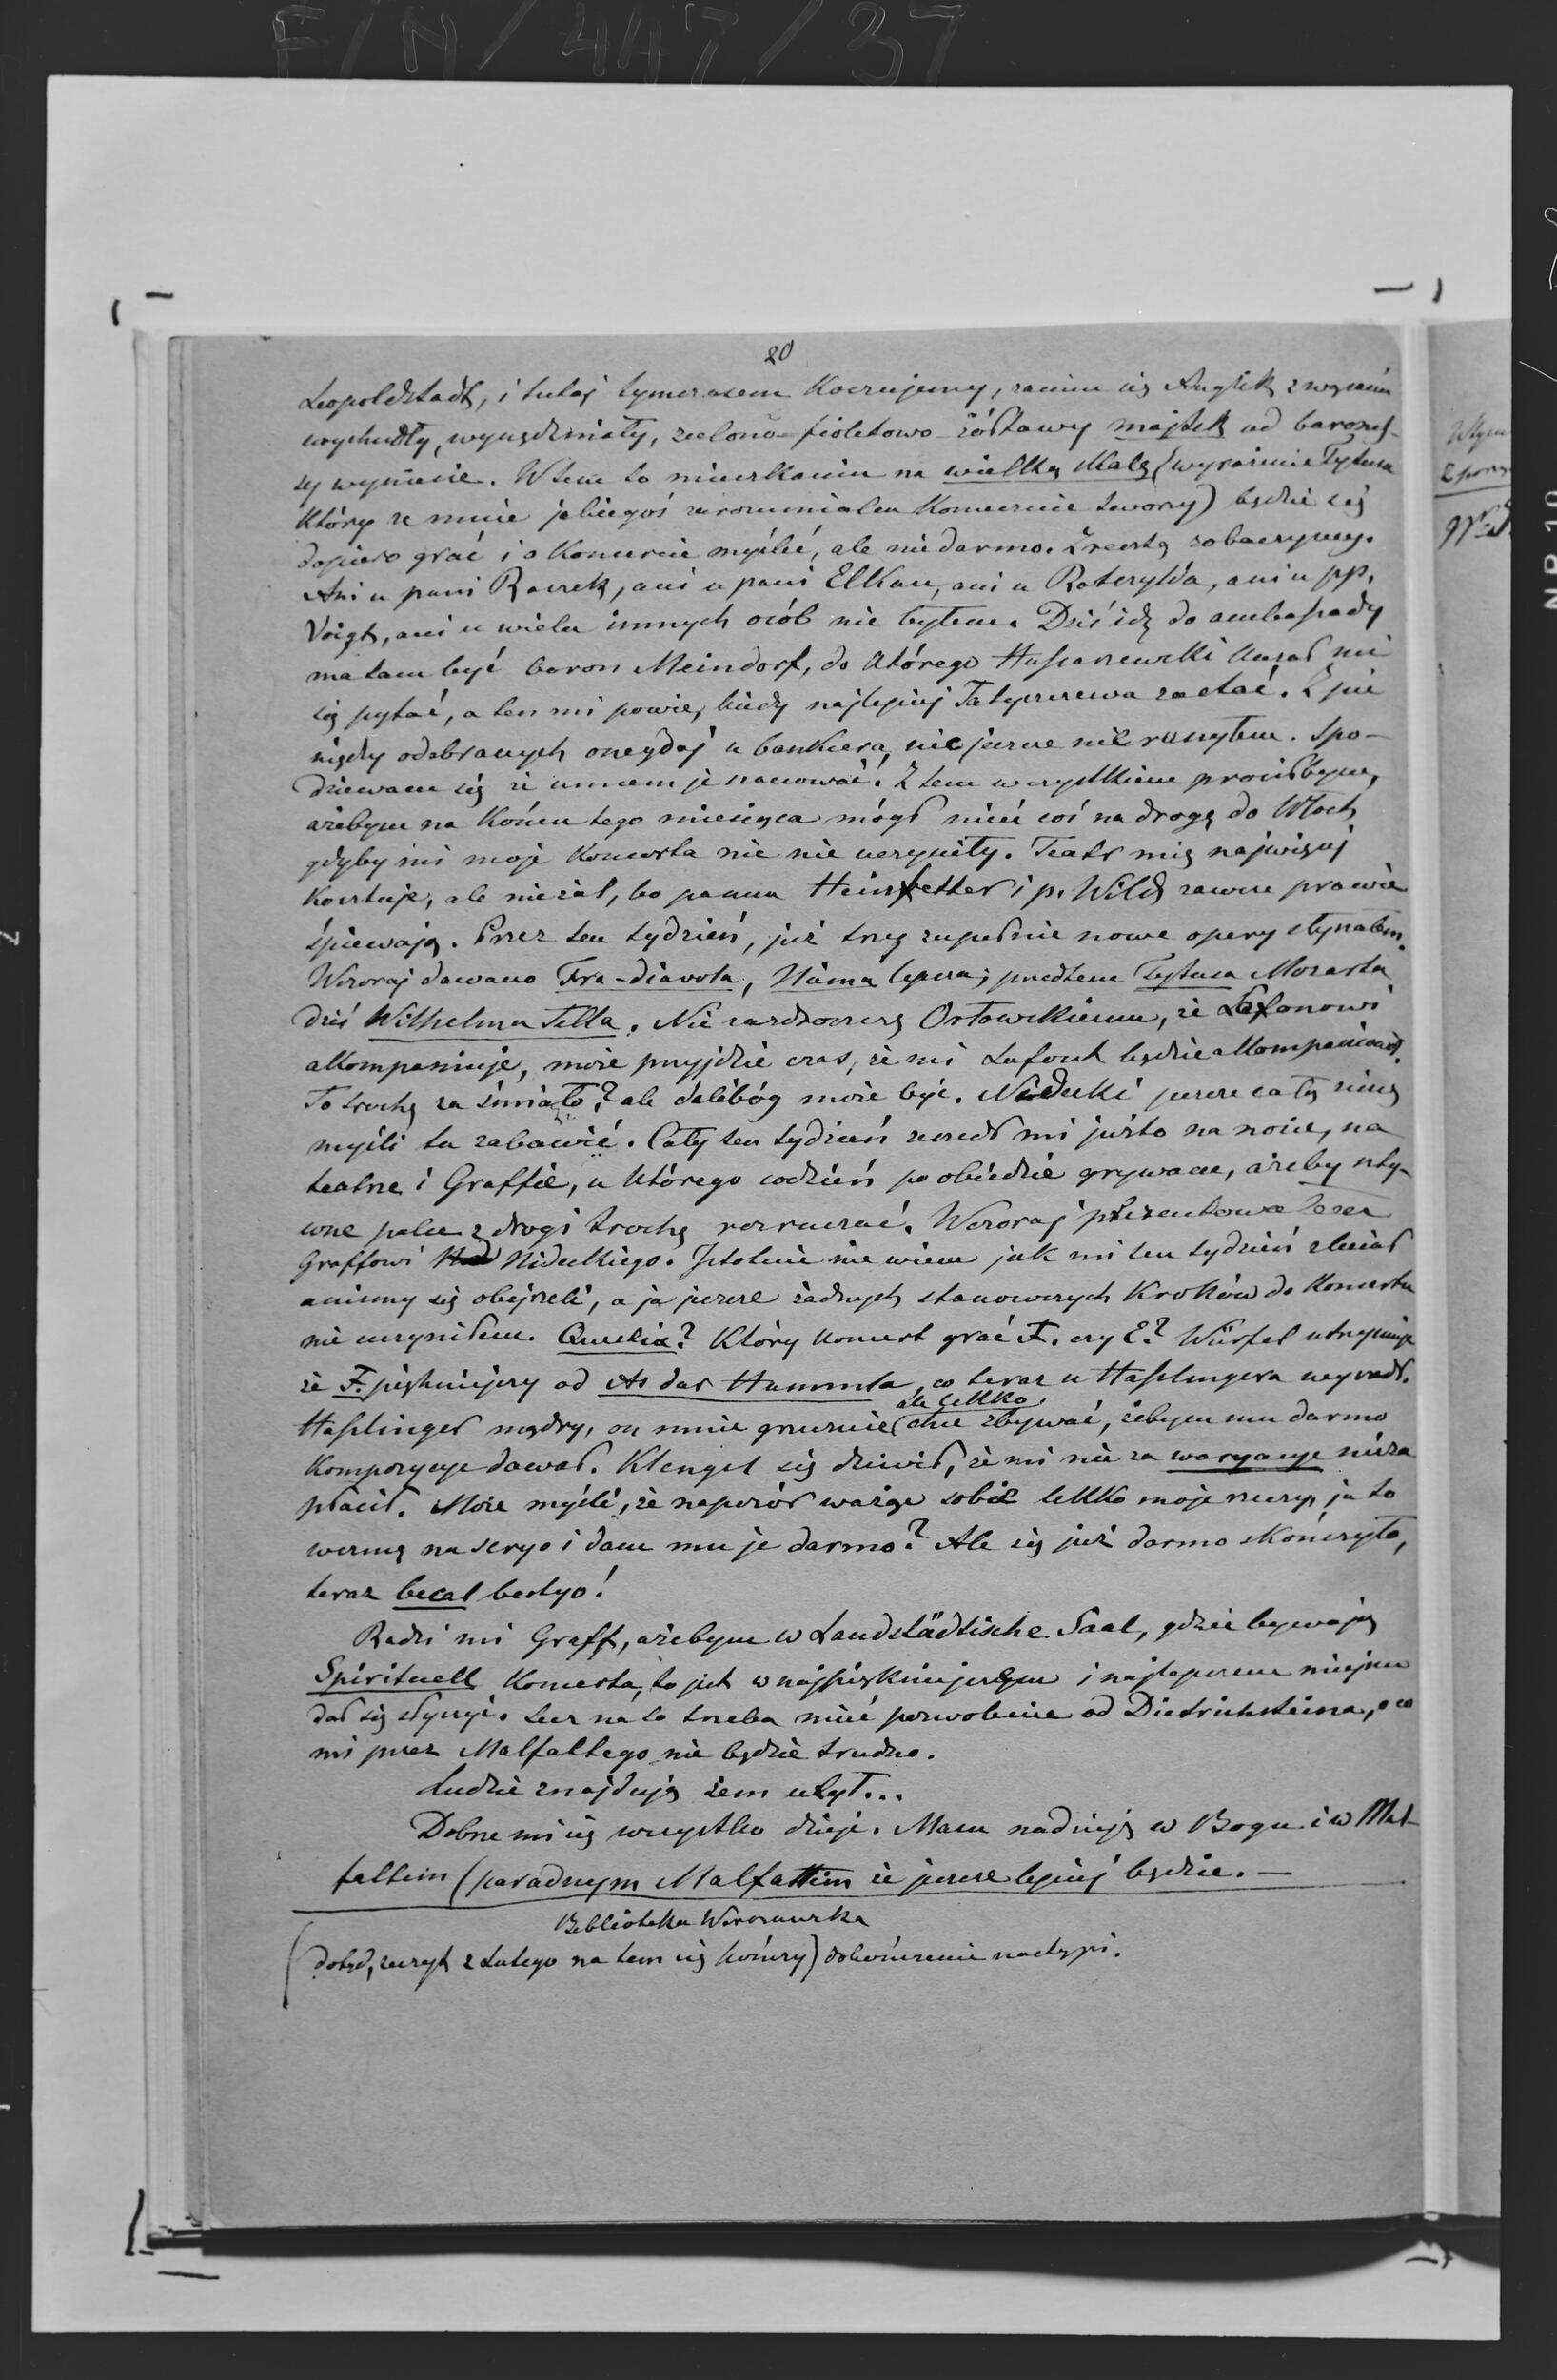 F/N/447/37
20
Leopoldstadt, i tutaj tymczasem koczujemy, zanim się Anglik z wysiania
wychudły, wynędzniały, zielono-fioletowo-żółtawy majtek od barones-
sy wyniesie. W tem to mieszkaniu na wielką skalę (wyrażenie Tytusa
który ze mnie jakiegoś zarozumialca koniecznie tworzy) będzie się
dopiero grać i o koncercie myśleć, ale nie darmo. Zresztą zobaczymy.
Ani u pani Raczek, ani u pani Elkan, ani u Rotszylda, ani u pp.
Voigt, ani u wielu innych osób nie byłem. Dziś idę do ambasady
ma tam być baron Meindorf, do którego Hussarzewski kazał mi
się pytać, a ten mi powie, kiedy najlepiej Tatyszczewa zastać. Z pie
niędzy odebranych onegdaj u bankiera, nic jeszcze nie ruszyłem. Spo-
dziewam się że umiem je szanować. Z tem wszystkiem prosiłbym,
ażebym na końcu tego miesiąca mógł mieć coś na drogę do Włoch,
gdyby mi moje koncerta nic nie uczyniły. Teatr mię najwięcej
kosztuje, ale nie żal, bo panna Heinefetter i p. Wild zawsze prawie
śpiewają. Przez ten tydzień, już trzy zupełnie nowe opery słyszałem.
Wczoraj dawano Fra-diavola, Niema lepsza; przedtem Tytusa Mozarta
dziś Wilhelma Tella. Nie zazdroszczę Orłowskiemu, że Lafonowi
akompaniuje, może przyjdzie czas, że mi Lafont będzie akompaniował.
To trochę za śmiało? ale dalibóg może być. Nidecki jeszcze całą zimę
myśli tu zabawić. Cały ten tydzień zszedł mi już to na nosie, na
teatrze i Graffie, u którego codzień po obiedzie grywam, ażeby szty-
wne palce z drogi trochę rozruszać. Wczoraj prezentowałem
Graffowi Nideckiego. Istotnie nie wiem jak mi ten tydzień zleciał
aniśmy się obejrzeli, a ja jeszcze żadnych stanowczych kroków do koncertu
nie uczyniłem. Quaestia? Który koncert grać F. czy E.? Würfel utrzymuje
że F. piękniejszy od As dur Hummla, co teraz u Haslingera wyszedł.
Haslinger mądry, on mnie grzecznie (ale lekko chce zbywać, żebym mu darmo
kompozycye dawał. Klengel się dziwił, że mi nic za waryacye nie za
płacił. Może myśli, że napozór ważąc sobie lekko moje rzeczy, ja to
wezmę na seryo i dam mu je darmo? Ale się już darmo skończyło,
teraz becal bestyo!
Radzi mi Graff, ażebym w Landstädtische Saal, gdzie bywają
Spirituell koncerta, to jest w najpiękniejszym i najlepszem miejscu
dał się słyszyć. Lecz na to trzeba mieć pozwolenie od Dietrichsteina, o co
mi przez Malfattego nie będzie trudno.
Ludzie znajdują żem utył...
Dobrze mi się wszystko dzieje. Mam nadzieję w Bogu i w Mal-
fattim (paradnym Malfattim że jeszcze lepiej będzie. —
Biblioteka Warszawska
(dotąd, zeszyt z Lutego na tem się kończy) dokończenie nastąpi.